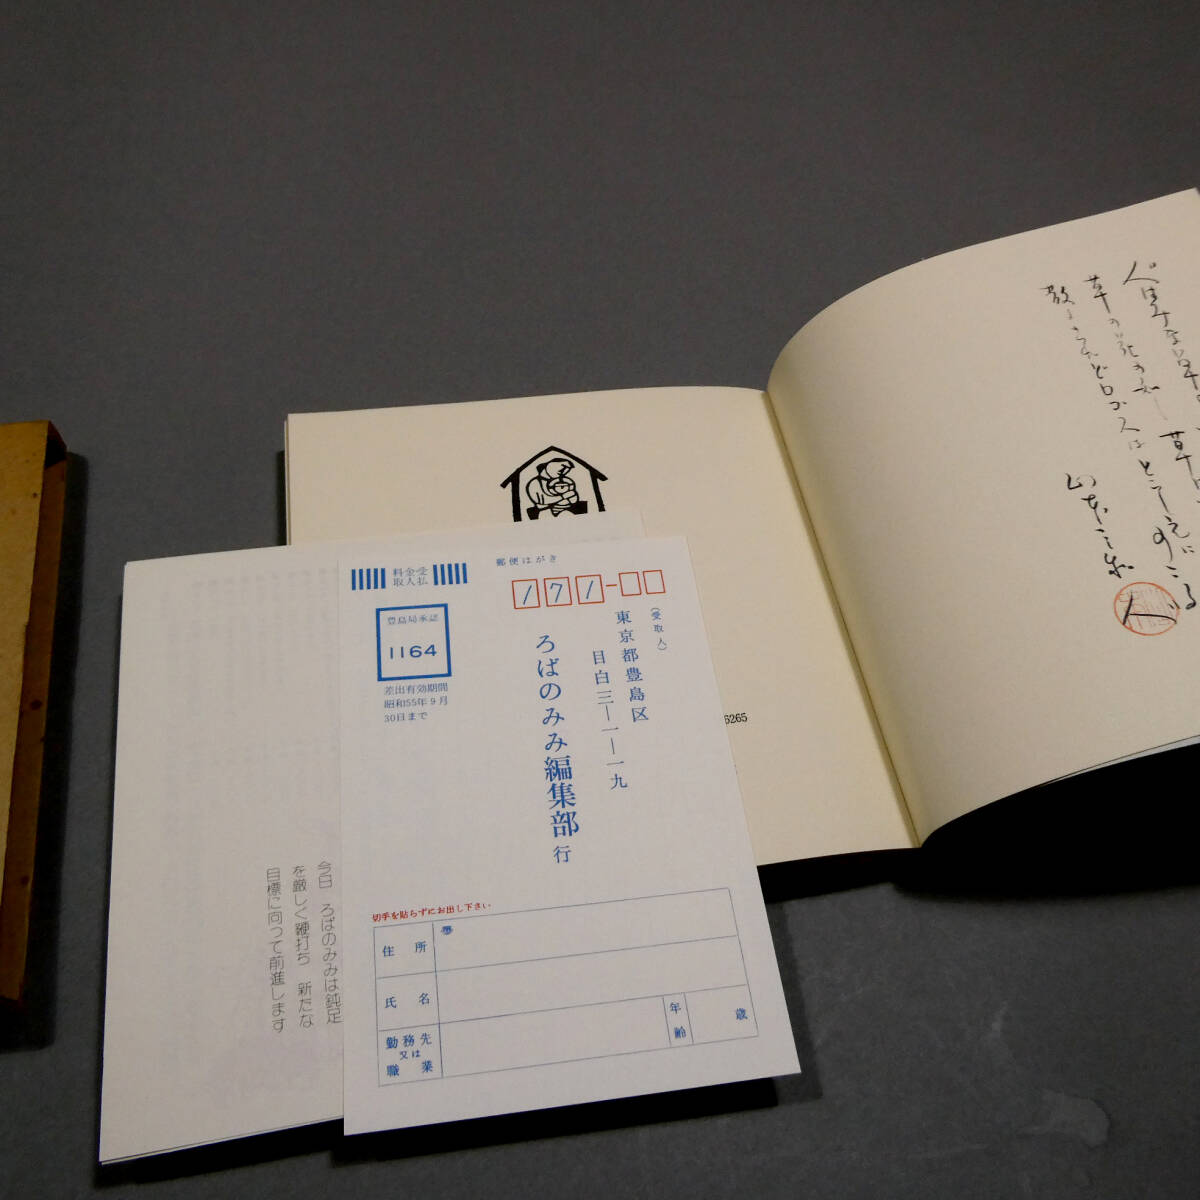 郵便はがき
料金受
取人払
171-
豊島局承認
1164
差出有効期間
昭和55年9月
30日まで
(受取人)
東京都豊島区
目白三―一―一九
ろばのみみ編集部 行
切手を貼らずにお出し下さい
住所
氏名
年齢
歳
勤務先
又は
職業
今日 ろばのみみは鈍足
を厳しく鞭打ち 新たな
目標に向って前進します
6265
草の花の如し